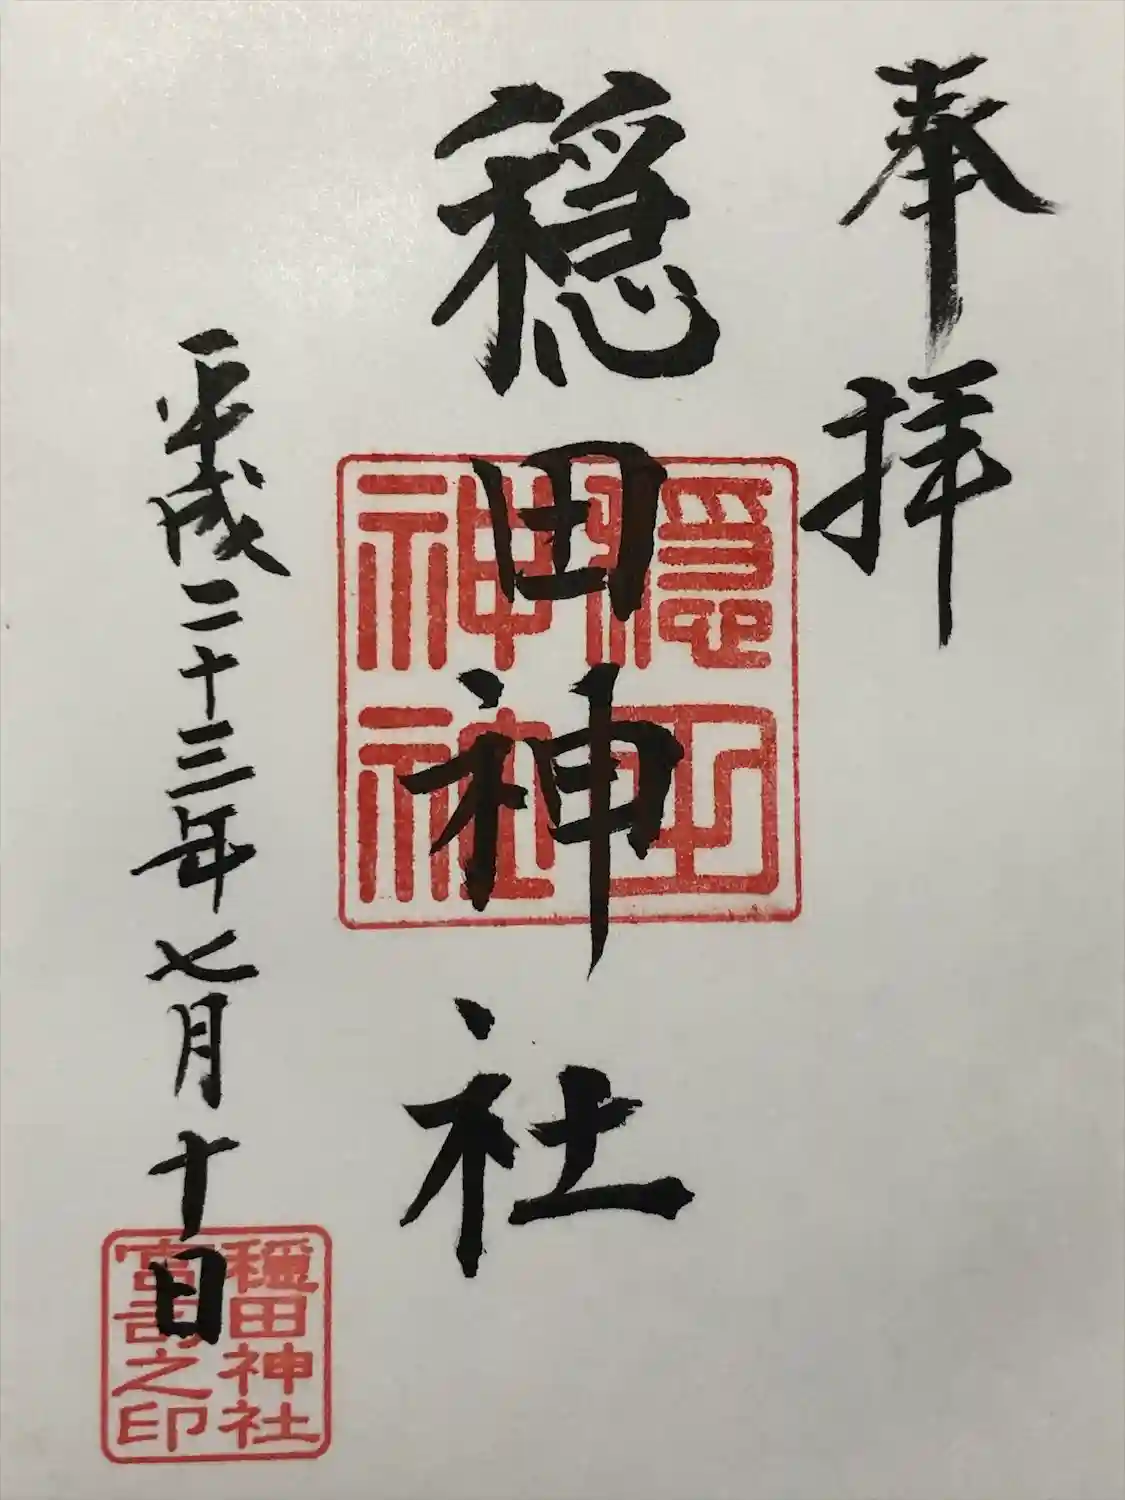 奉拝
穏田神社
穏田神社
平成二十三年七月十日
穏田神社
宮司之印